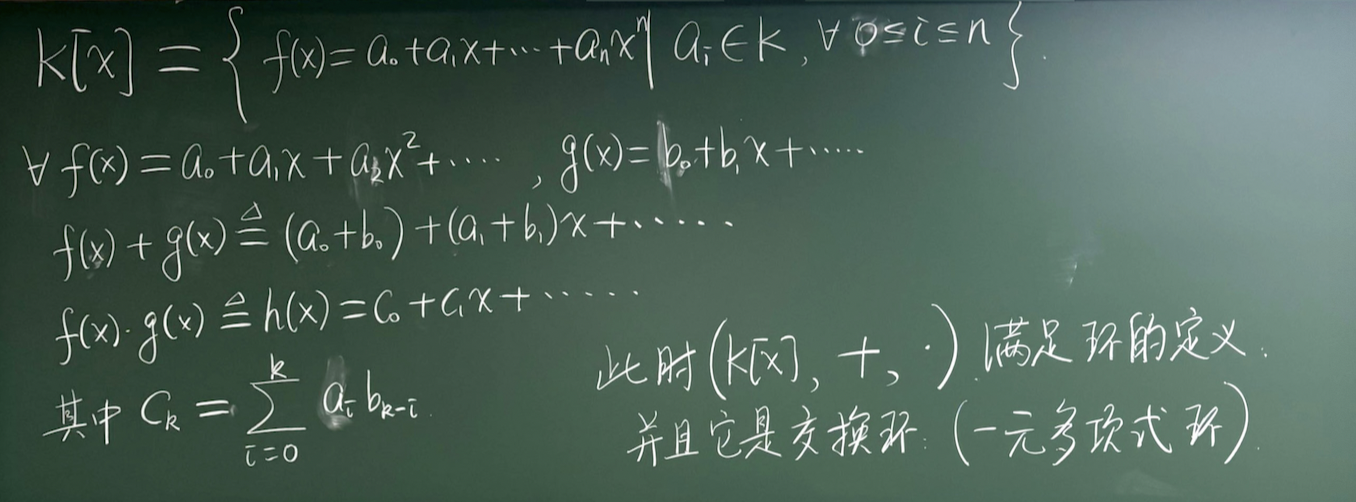 k[x] = { f(x) = a₀+a₁x+⋯+aₙxⁿ | aᵢ∈k, ∀ 0≤i≤n }.
∀ f(x) = a₀+a₁x+a₂x²+⋯⋯, g(x) = b₀+b₁x+⋯⋯
f(x)+g(x) ≜ (a₀+b₀)+(a₁+b₁)x+⋯⋯
f(x)·g(x) ≜ h(x) = c₀+c₁x+⋯⋯
其中 cₖ = ∑_{i=0}^{k} aᵢ bₖ₋ᵢ.
此时 (k[x], +, ·) 满足环的定义.
并且它是交换环. (一元多项式环).